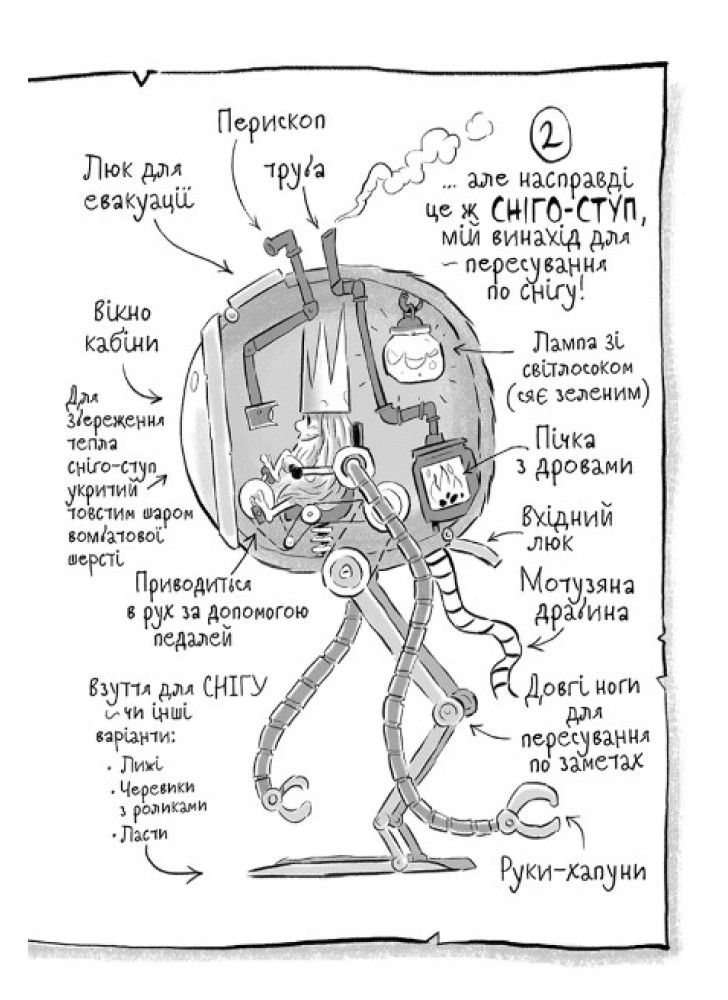 Перископ
Люк для
евакуації
труба
2
... але насправді
це ж СНІГО-СТУП,
мій винахід для
пересування
по снігу!
Вікно
кабіни
Лампа зі
світлосоком
(сяє зеленим)
Для
збереження
тепла
сніго-ступ
укритий
товстим шаром
вомбатової
шерсті
Пічка
з дровами
Вхідний
люк
Приводиться
в рух за допомогою
педалей
Мотузяна
драбина
Взуття для СНІГУ
чи інші
варіанти:
• Лижі
• Черевики
з роликами
• Ласти
Довгі ноги
для
пересування
по заметах
Руки-хапуни